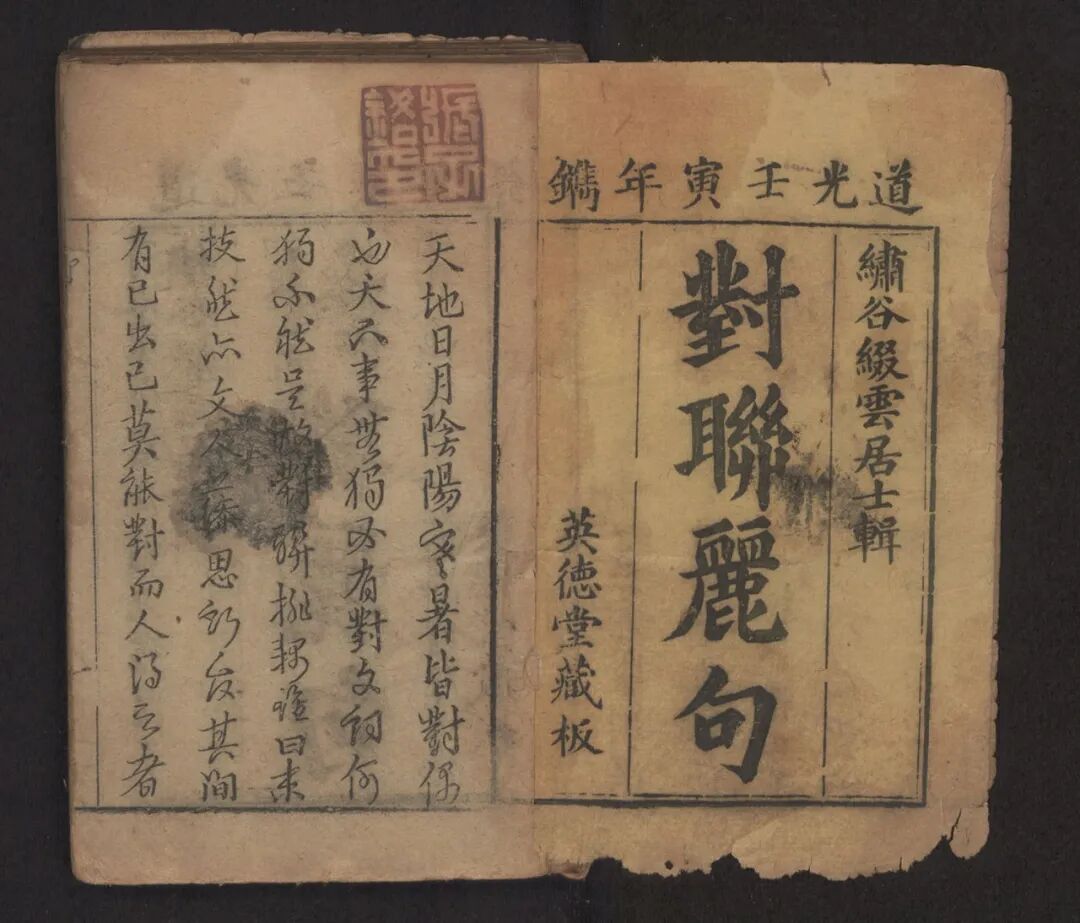 道光壬寅年鐫
繡谷綴雲居士輯
對聯麗句
英德堂藏板
天地日月陰陽寒暑皆對偶
也天下事無獨必有對文詞何
獨不然是故對聯排耦雖曰末
技然亦文人之思所及其間
有已出已莫能對而人得之者